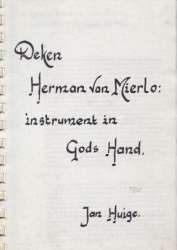 Deken
Herman van Mierlo:
instrument in
Gods Hand.
Jan Huige.